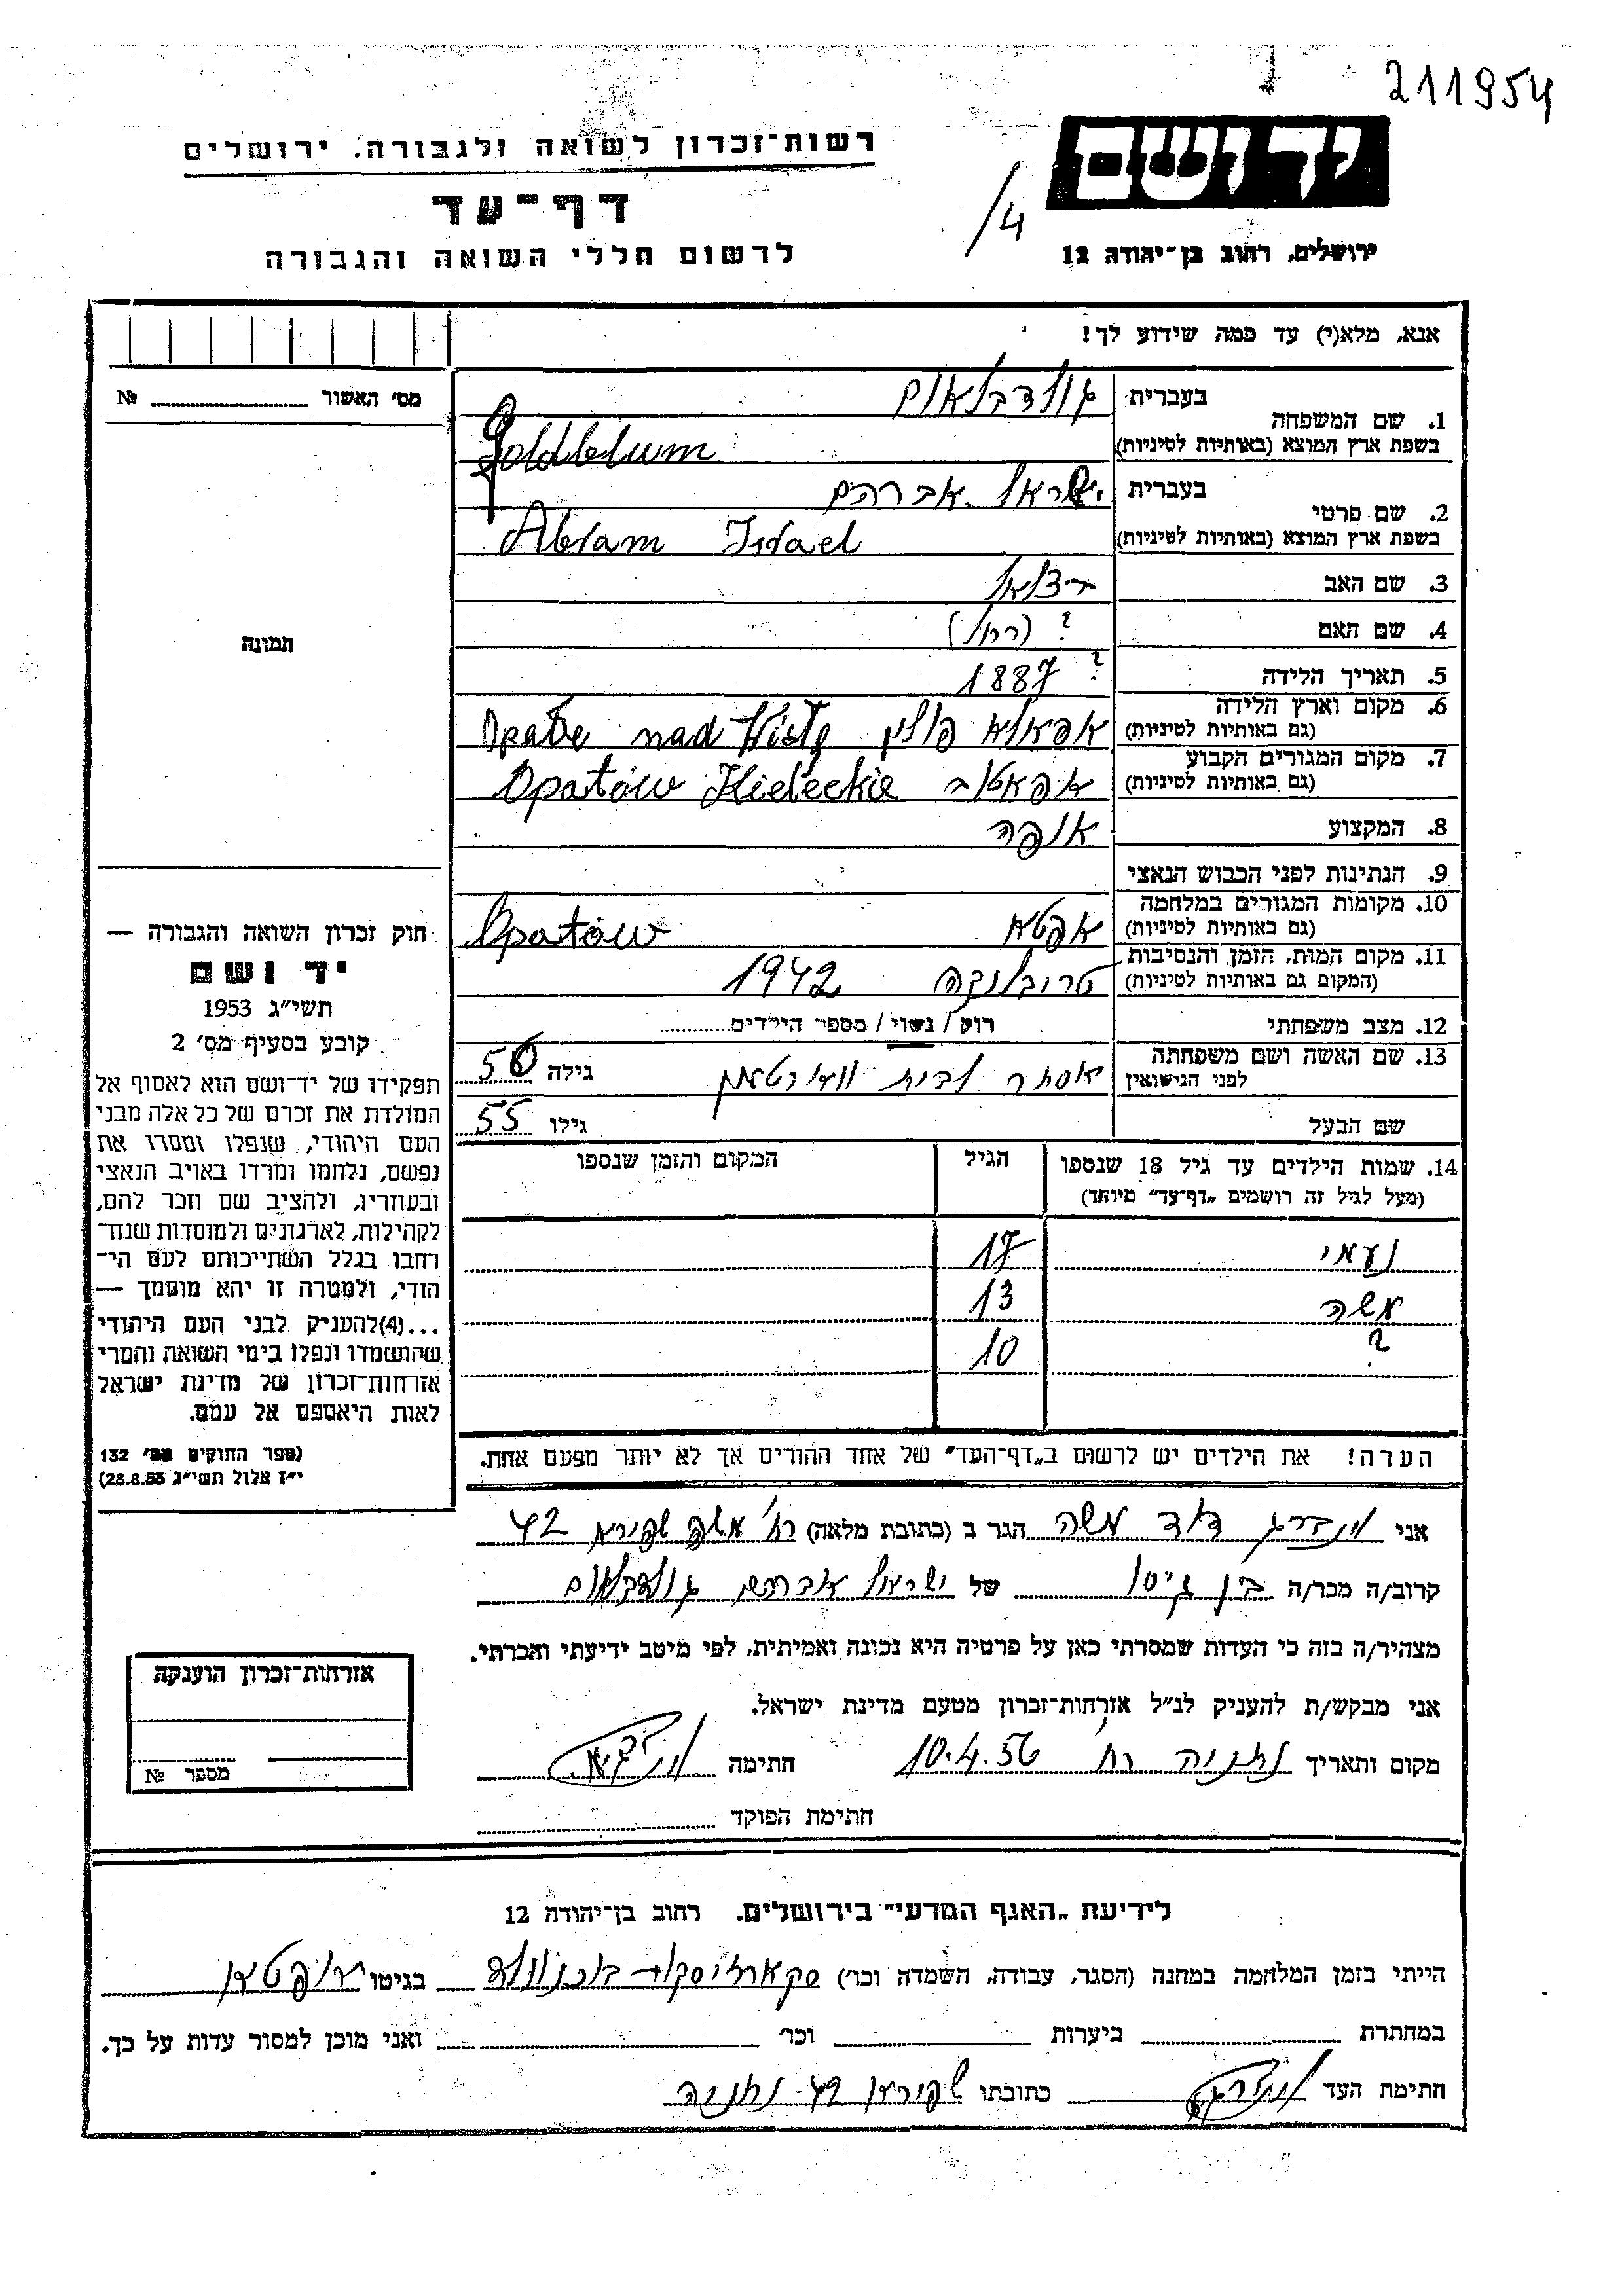 211954
רשות-זכרון לשואה ולגבורה, ירושלים
דף-עד
לרשום חללי השואה והגבורה
יד ושם
ירושלים, רחוב בן-יהודה 12
/4
אנא, מלא(י) עד כמה שידוע לך!
מס׳ האשור № 
1. שם המשפחה בעברית גולדבלאום
בשפת ארץ המוצא (באותיות לטיניות) Goldblum
2. שם פרטי בעברית ישראל אברהם
בשפת ארץ המוצא (באותיות לטיניות) Abram Israel
3. שם האב בצלאל
4. שם האם ? (רחל)
5. תאריך הלידה 1887 ?
6. מקום וארץ הלידה (גם באותיות לטיניות) פולין nad Wisłą
7. מקום המגורים הקבוע (גם באותיות לטיניות) אפאטוב Opatów Kieleckie
8. המקצוע אופה
9. הנתינות לפני הכבוש הנאצי
10. מקומות המגורים במלחמה (גם באותיות לטיניות) אפטא Opatów
11. מקום המות, הזמן והנסיבות (המקום גם באותיות לטיניות) טרובלינקה 1942
12. מצב משפחתי רוק / נשוי / מספר הילדים
13. שם האשה ושם משפחתה לפני הנישואין אסתר לבית גילה 50
שם הבעל גילו 55
14. שמות הילדים עד גיל 18 שנספו (מעל לגיל זה רושמים „דף-עד" מיוחד) הגיל המקום והזמן שנספו
נעמי 17
משה 13
? 10
הערה! את הילדים יש לרשום ב„דף-העד" של אחד ההורים אך לא יותר מפעם אחת.
תמונה
חוק זכרון השואה והגבורה —
יד ושם
תשי״ג 1953
קובע בסעיף מס׳ 2
תפקידו של יד-ושם הוא לאסוף אל
המולדת את זכרם של כל אלה מבני
העם היהודי, שנפלו ומסרו את
נפשם, נלחמו ומרדו באויב הנאצי
ובעוזריו, ולהציב שם וזכר להם,
לקהילות, לארגונים ולמוסדות שנח-
רחבו בגלל השתייכותם לעם הי-
הודי, ולמטרה זו יהא מוסמך —
...(4)להעניק לבני העם היהודי
שהושמדו ונפלו בימי השואה והמרי
אזרחות-זכרון של מדינת ישראל
לאות היאספם אל עמם.
(ספר החוקים מס׳ 132
י״ז אלול תשי״ג 28.8.53)
אני וינברג דוד משה הגר ב (כתובת מלאה) רח׳ משה שפירא 42
קרוב/ה מכר/ה בן גיסו של ישראל אברהם גולדבלאום
מצהיר/ה בזה כי העדות שמסרתי כאן על פרטיה היא נכונה ואמיתית, לפי מיטב ידיעתי והכרתי.
אני מבקש/ת להעניק לנ״ל אזרחות-זכרון מטעם מדינת ישראל.
מקום ותאריך נתניה 10.4.56 חתימה
חתימת הפוקד
אזרחות-זכרון הוענקה
מספר №
לידיעת „האגף המדעי" בירושלים, רחוב בן-יהודה 12
הייתי בזמן המלחמה במחנה (הסגר, עבודה, השמדה וכו׳) בגיטו
במחתרת ביערות וכו׳ ואני מוכן למסור עדות על כך.
חתימת העד כתובתו 42 נתניה